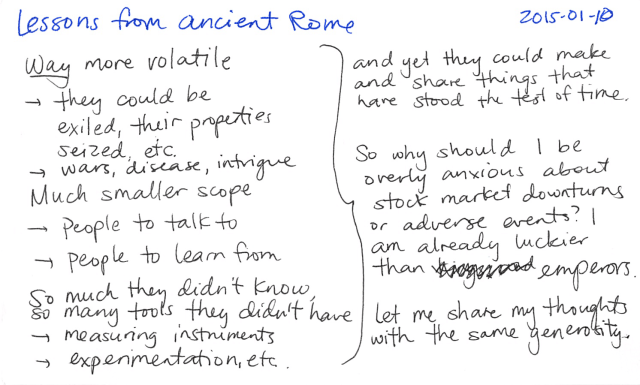 Lessons from ancient Rome
2015-01-10
Way more volatile
→ they could be
exiled, their properties
seized, etc.
→ wars, disease, intrigue
Much smaller scope
→ People to talk to
→ people to learn from
So much they didn't know,
so many tools they didn't have
→ measuring instruments
→ experimentation, etc.
and yet they could make
and share things that
have stood the test of time.
So why should I be
overly anxious about
stock market downturns
or adverse events? I
am already luckier
than emperors.
Let me share my thoughts
with the same generosity.